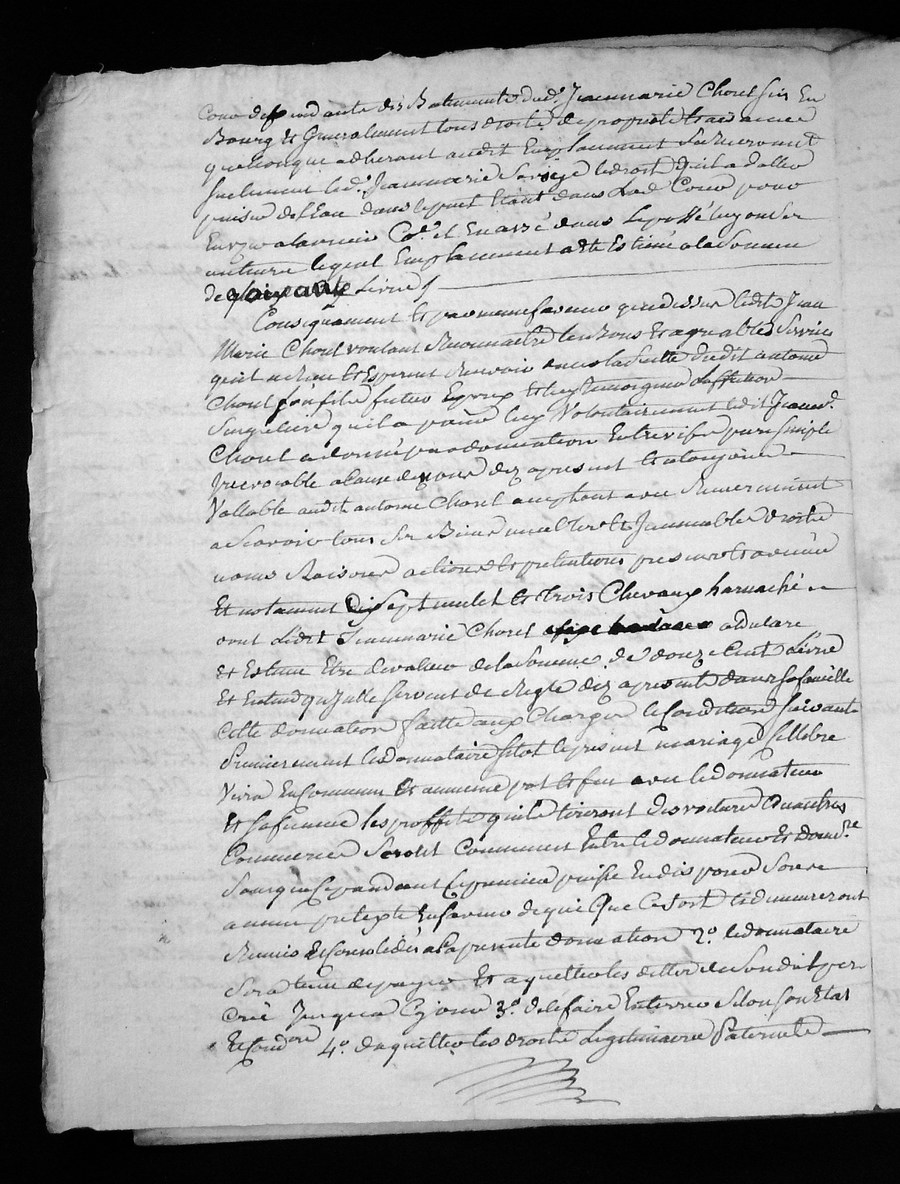 Cour dependante des Batiments dud. Jeanmarie Choret sis En
Bourg Et Generalement tous droits de propriete
quelconque adherant audit Emplacement Se Reservant
seulement led. Jeanmarie le droit quil a daller
puiser de lEau dans le puit Etant dans Lad. Cour pour
En
lequel Emplacement a Ete Estimé a la Somme
de soixante Livres
Conséquament Et par meme faveur que dessus ledit Jean
Marie Choret voulant Reconnaitre les Bons Et agreables Services
quil a Recu Et Esperent Recevoir dans la suitte dudit antoine
Choret son fils futur Epoux Et luy temoigner Laffection
Singuliere quil a pour luy Volontairement ledit Jeanm.
Choret a donné par donnation Entrevifs pure simple
Irrevocable a cause de noce dez apresent Et a toujours
Vallable audit antoine Choret aceptant avec Remerciment
a Scavoir tous Ses Biens meubles Et Immeubles droits
noms Raisons actions Et pretentions presents Et avenir
Et notament Dix Sept mulet Et trois Chevaux harnaché
dont Ledit Jeanmarie Choret a declare
Et Estime Etre de valleur de la Somme de douze Cent Livre
Et Entend quils servent de Regle dez apresent dans sa famille
Cette donnation faitte aux Charges Et Condition Suivante
Premierement le donnataire sitot le present mariage Cellebre
Vivra En Commun Et a meme pot Et feu avec le donnateur
Et sa femme les proffits quils tireront des voiture Et autres
Commerce Seront Communent Entre le donnateur Et Donn.re
Sans que Cependant Ce premier puisse En disposer Sous
aucun pretexte En faveur de qui que Ce Soit Et demeureront
Reunis Et Consolidés a la presente donnation 2°. le donnataire
Sera tenu de payer Et aquitter les dettes de Son dit per
Cree Jusqua Ce jour 3°. de le faire Enterrer Selon Son Etat
Et Cond.on 4°. daquitter les droits Legitimaires Paternels